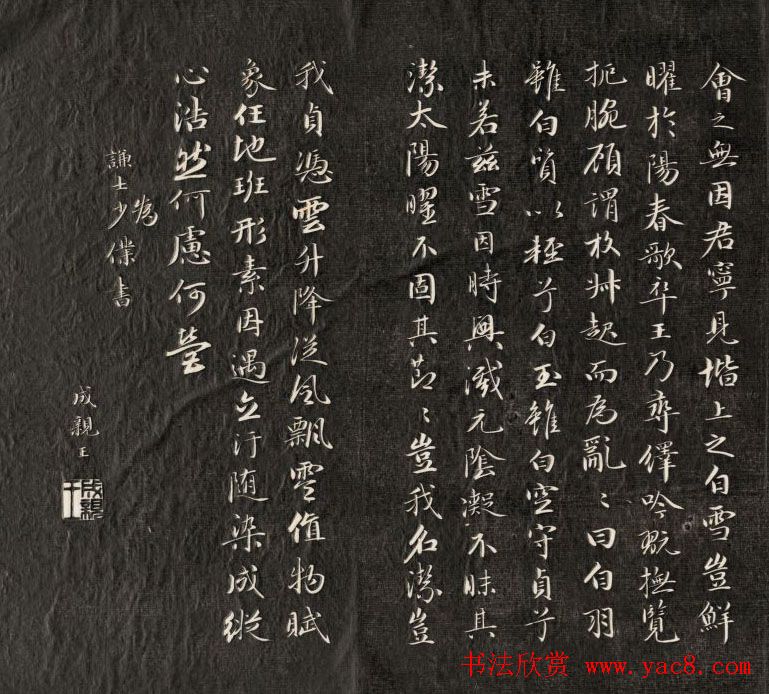 會之無因君寧見堦上之白雪豈鮮
曜於陽春歌卒王乃尋繹吟翫撫覽
扼腕顧謂枚叔起而為亂〻曰白羽
雖白質以輕兮白玉雖白空守貞兮
未若茲雪因時興滅元陰凝不昧其
潔太陽曜不固其節〻豈我名潔豈
我貞憑雲升降從風飄零值物賦
象任地班形素因遇立汙随染成縱
心浩然何慮何營
為
謙士少僕書
成親王
书法欣赏 www.yac8.com